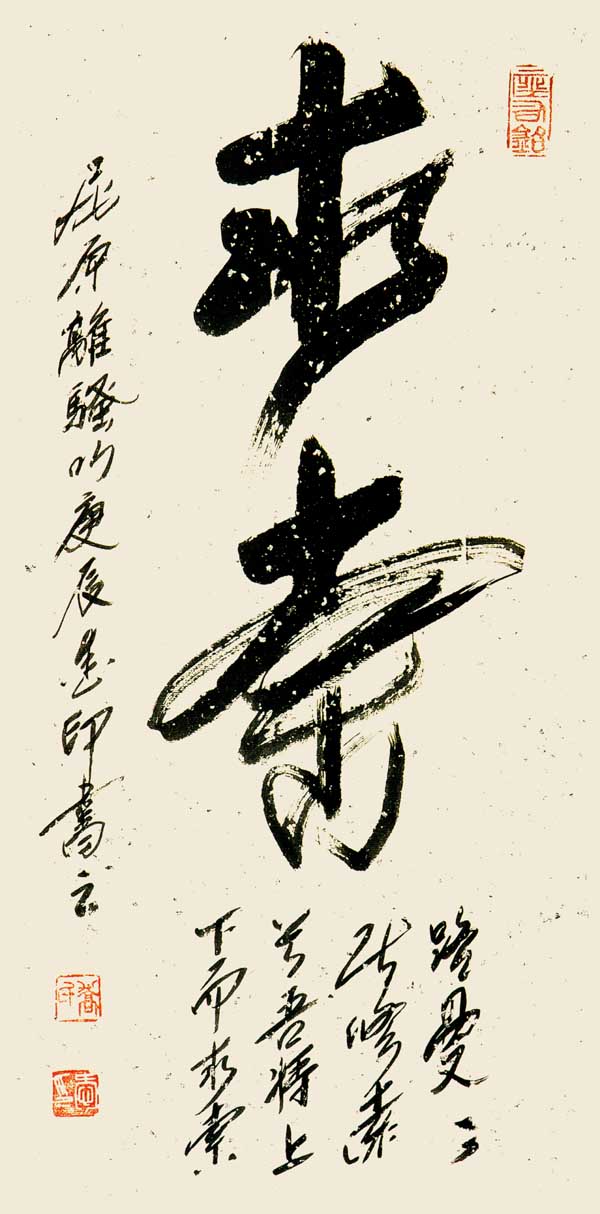 求索
路曼々
其修遠
兮吾將上
下而求索
屈原離騷句庚辰志印書之
座右銘